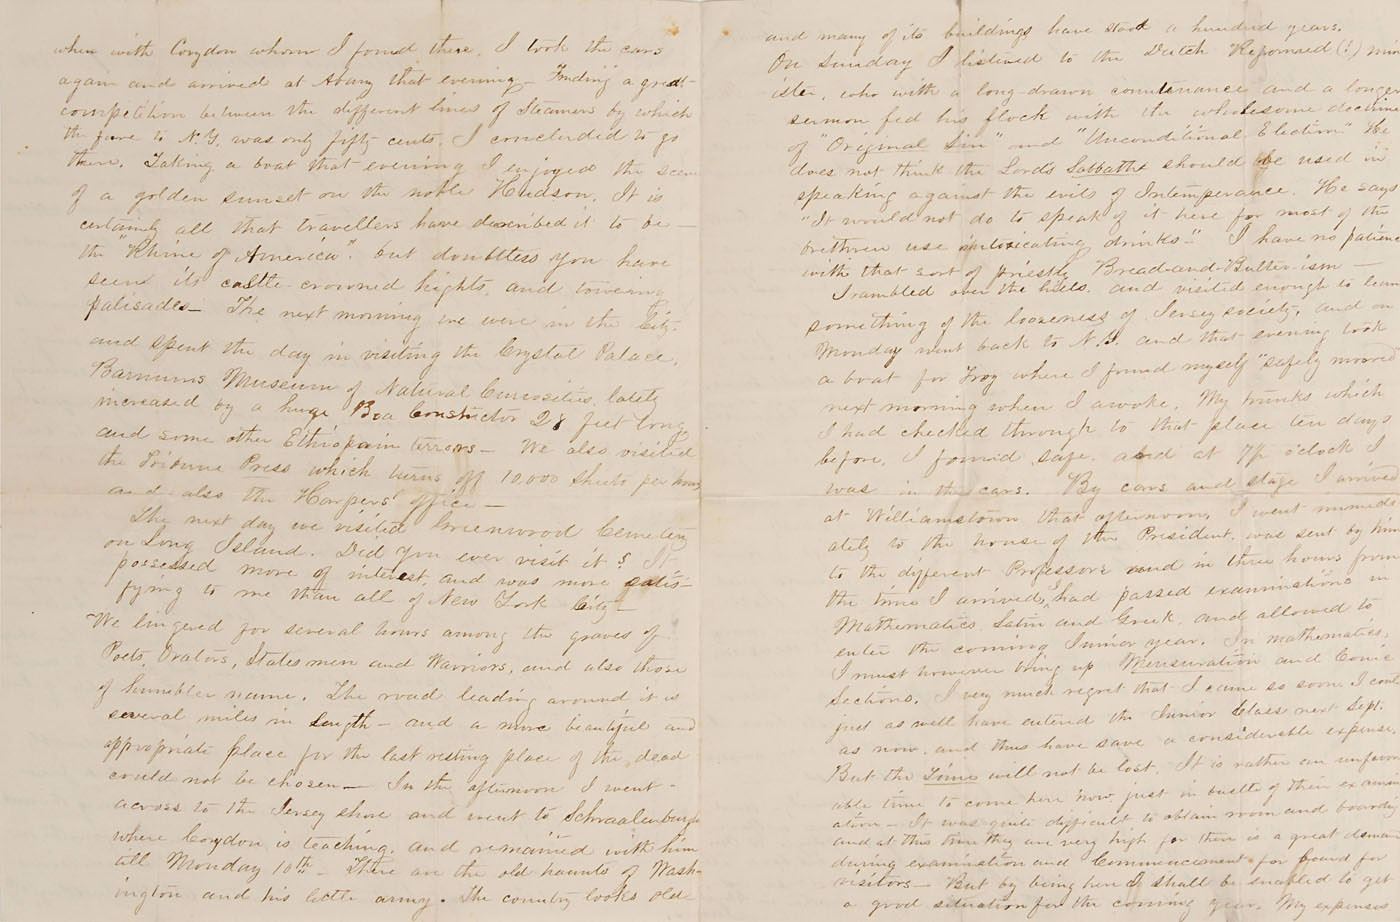 when with Corydon whom I found there. I took the cars
again and arrived at Abany that evening— Finding a great
competition between the different lines of Steamers by which
the fare to N.Y. was only fifty cents, I concluded to go
there. Taking a boat that evening I enjoyed the scene
of a golden sunset on the noble Hudson. It is
certainly all that travellers have described it to be—
the "Rhine of America". but doubtless you have
seen its castle-crowned hights, and towering
palisades— The next morning we were in the City.
and spent the day in visiting the Crystal Palace,
Barnums Museum of Natural Curiosities, lately
increased by a huge Boa Constrictor 28 feet long
and some other Ethiopian terrors— We also visited
the Tribune Press which turns off 10,000 sheets per hour
and also the Harpers' office—
The next day we visited Greenwood Cemetery
on Long Island. Did you ever visit it? It
possessed more of interest, and was more satis-
fying to me than all of New York City—
We lingered for several hours among the graves of
Poets, Orators, Statesmen and Warriors, and also those
of humbler name. The road leading around it is
several miles in length— and a more beautiful and
appropriate place for the last resting place of the dead
could not be chosen— In the afternoon I went
across to the Jersey shore and went to Schraalenburgh
where Corydon is teaching, and remained with him
till Monday 10th— There are the old haunts of Wash-
ington and his little army. The country looks old
and many of its buildings have stood a hundred years.
On Sunday I listened to the Dutch Reformed (!) min
ister, who with a long-drawn countenance and a longer
sermon fed his flock with the wholesome doctrine
of "Original Sin" and "Unconditional Election" He
does not think the Lord's Sabbaths should be used in
speaking against the evils of Intemperance. He says
"It would not do to speak of it here for most of the
brethren use intoxicating drinks". I have no patience
with that sort of priestly Bread-and-Butter-ism—
I rambled over the hills, and visited enough to learn
something of the looseness of Jersey society, and on
Monday went back to N.Y. and that evening took
a boat for Troy where I found myself "safely moored"
next morning when I awoke. My trunks which
I had checked through to that place ten days
before, I found safe, and at 7½ o'clock I
was in the cars. By cars and stage I arrived
at Williamstown that afternoon. I went immedi
ately to the house of the President, was sent by him
to the different Professors and in three hours from
the time I arrived, I had passed examinations in
Mathematics Latin and Greek, and allowed to
enter the coming Junior year. In mathematics,
I must however bring up Mensuration and Conic
Sections. I very much regret that I came so soon. I could
just as well have entered the Junior Class next Sept.
as now, and thus have save a considerable expense.
But the Time will not be lost. It is rather an unfavor
able time to come here now just in bustle of their examin
ation— It was quite difficult to obtain room and boarding
and at this time they are very high for there is a great demand
during examination and Commencement for board for
visitors— But by being here I shall be enabled to get
a good situation for the coming year. My expenses